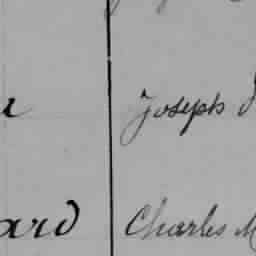 Joseph
ard Charles M